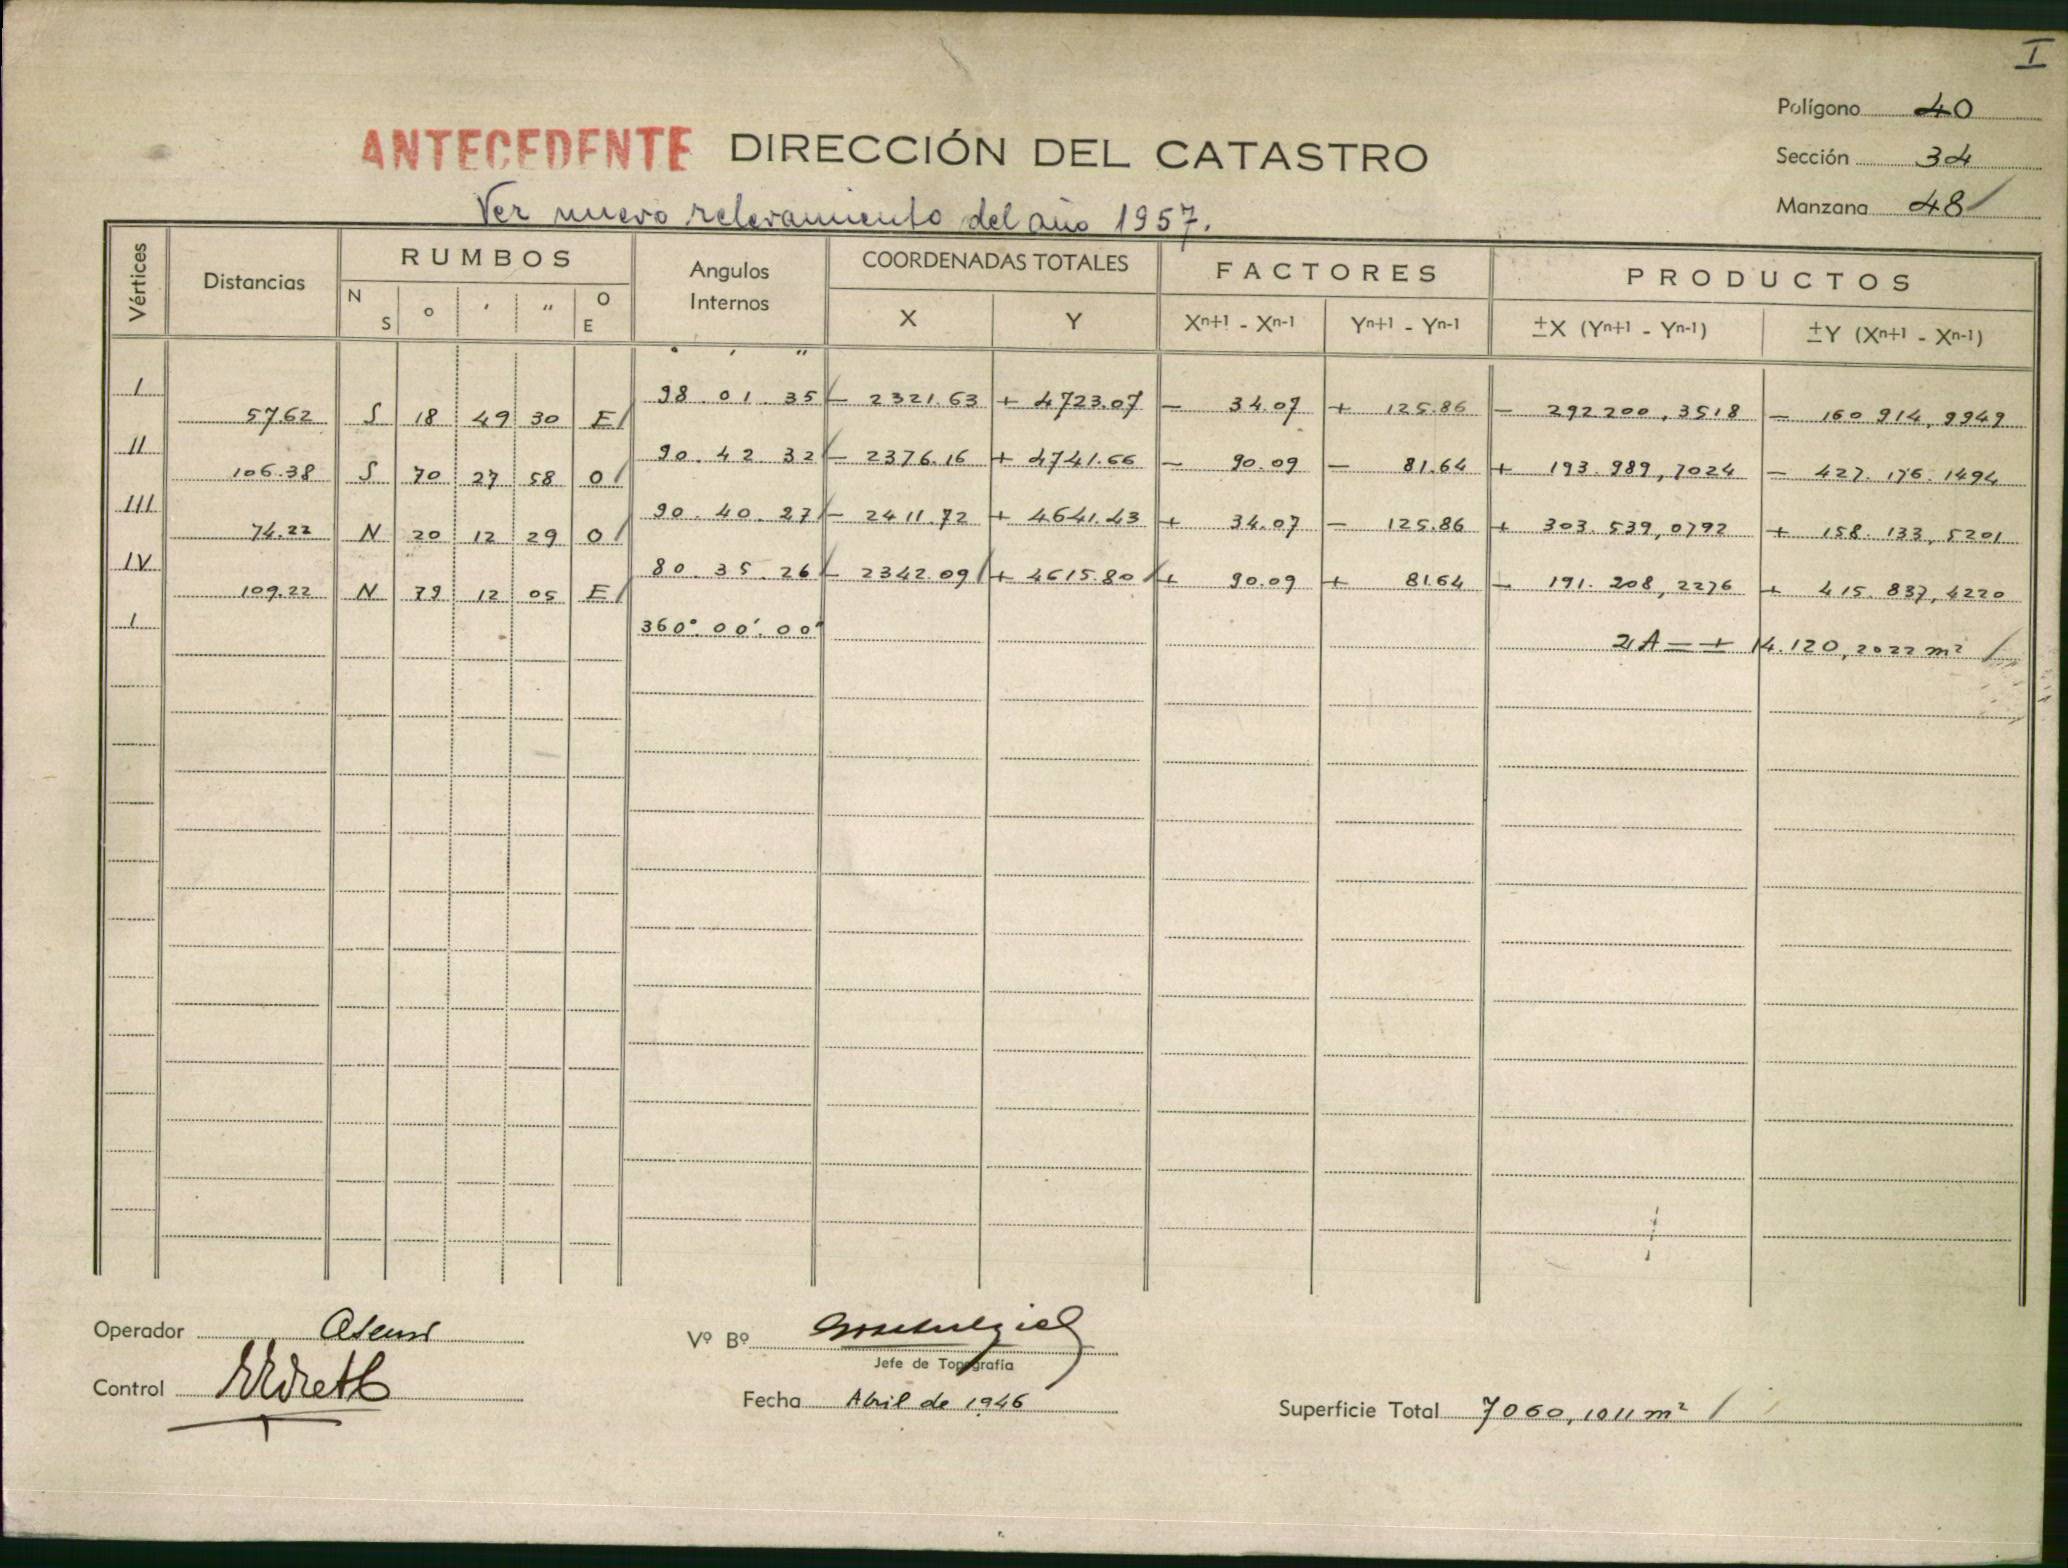 I
Polígono 40
ANTECEDENTE DIRECCIÓN DEL CATASTRO
Sección 34
Manzana 48
Ver nuevo relevamiento del año 1957.
Vértices Distancias RUMBOS Angulos Internos COORDENADAS TOTALES FACTORES PRODUCTOS
N S ° ' " O E X Y Xn+1 - Xn-1 Yn+1 - Yn-1 ±X (Yn+1 - Yn-1) ±Y (Xn+1 - Xn-1)
° ' "
I 98 . 01 . 35 - 2321.63 + 4723.07 - 34.07 + 125.86 - 292 200,3518 - 160 914,9949
57.62 S 18 49 30 E
II 90 . 42 32 - 2376.16 + 4741.66 - 90.09 - 81.64 + 193.989,7024 - 427.176.1494
106.38 S 70 27 58 O
III 90 . 40 . 27 - 2411.72 + 4641.43 + 34.07 - 125.86 + 303.539,0792 + 158.133,5201
74.22 N 20 12 29 O
IV 80 . 35 . 26 - 2342.09 + 4615.80 + 90.09 + 81.64 - 191.208,2276 + 415.837,4220
109.22 N 79 12 05 E
I 360°.00'.00" 2A = + 14.120,2022 m²
Operador
Vº Bº
Jefe de Topografía
Control
Fecha Abril de 1946
Superficie Total 7060,1011 m²